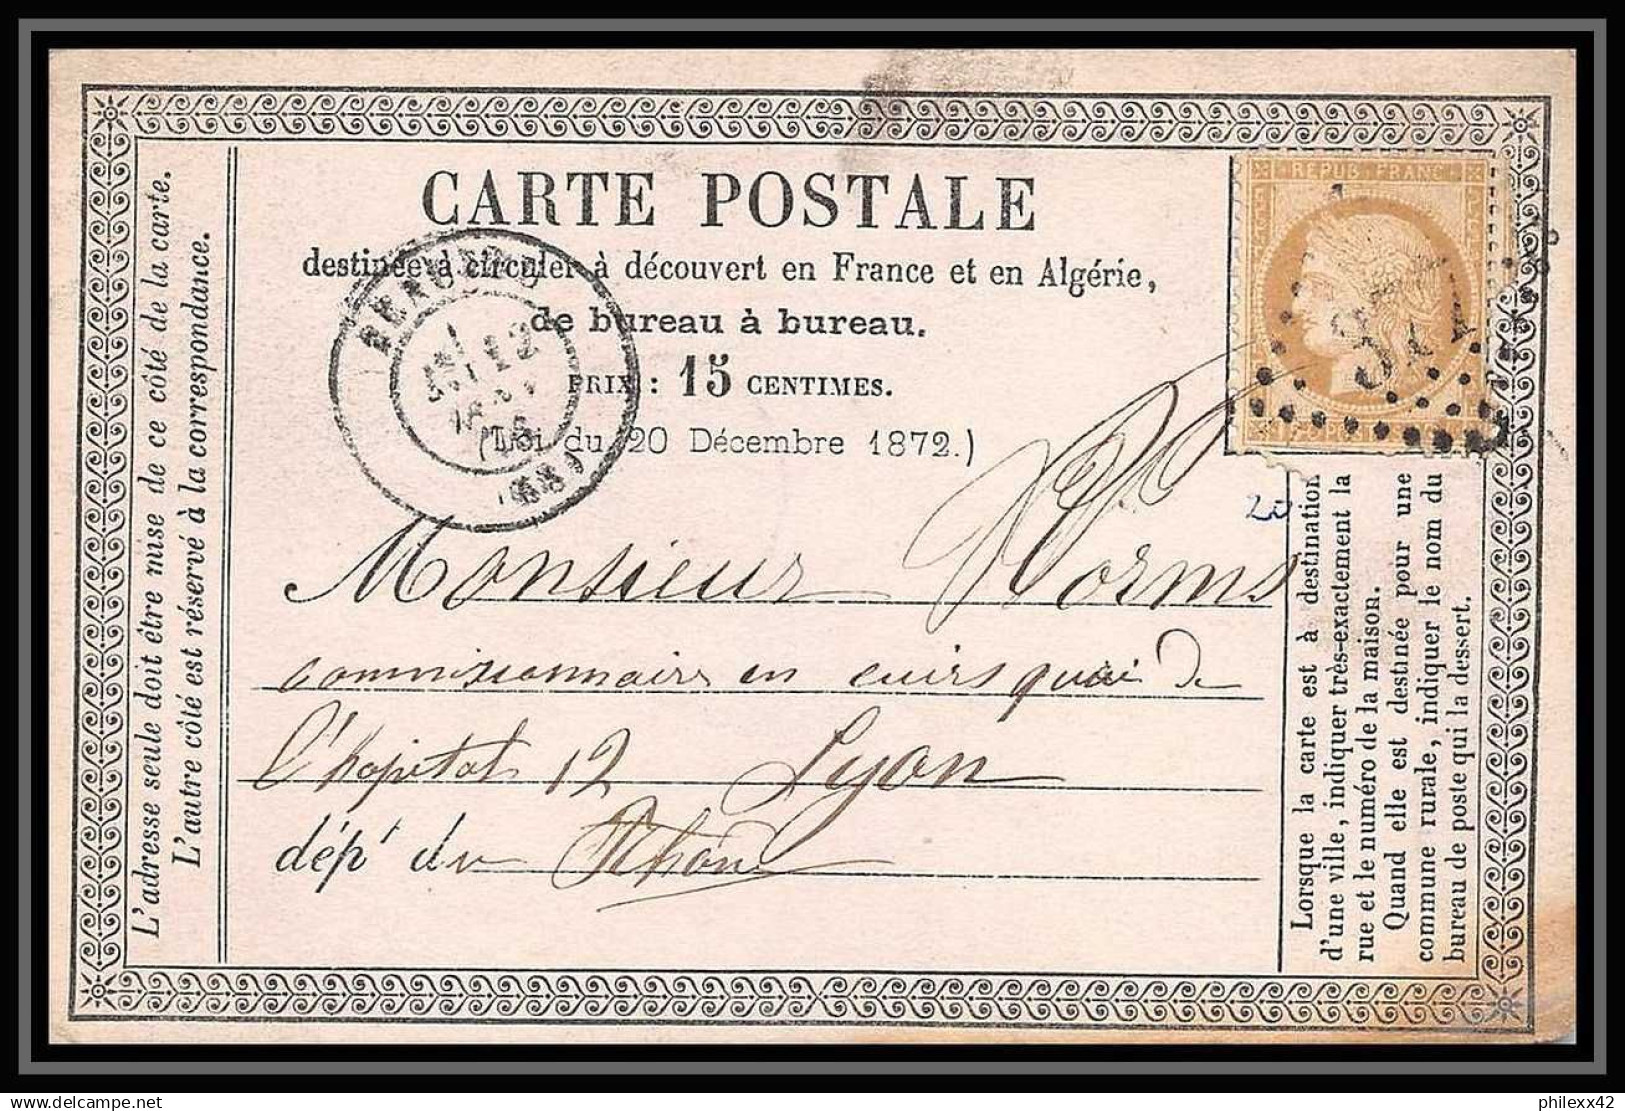 CARTE POSTALE
destinée à circuler à découvert en France et en Algérie,
de bureau à bureau.
PRIX : 15 CENTIMES.
(Loi du 20 Décembre 1872.)
REPUB FRANC
20
Monsieur Worms
commissionnaire en cuirs quai de
l'hopital 12 Lyon
dép' du Rhône
L'adresse seule doit être mise de ce côté de la carte.
L'autre côté est réservé à la correspondance.
Lorsque la carte est à destination
d'une ville, indiquer très-exactement la
rue et le numéro de la maison.
Quand elle est destinée pour une
commune rurale, indiquer le nom du
bureau de poste qui la dessert.
philexx42